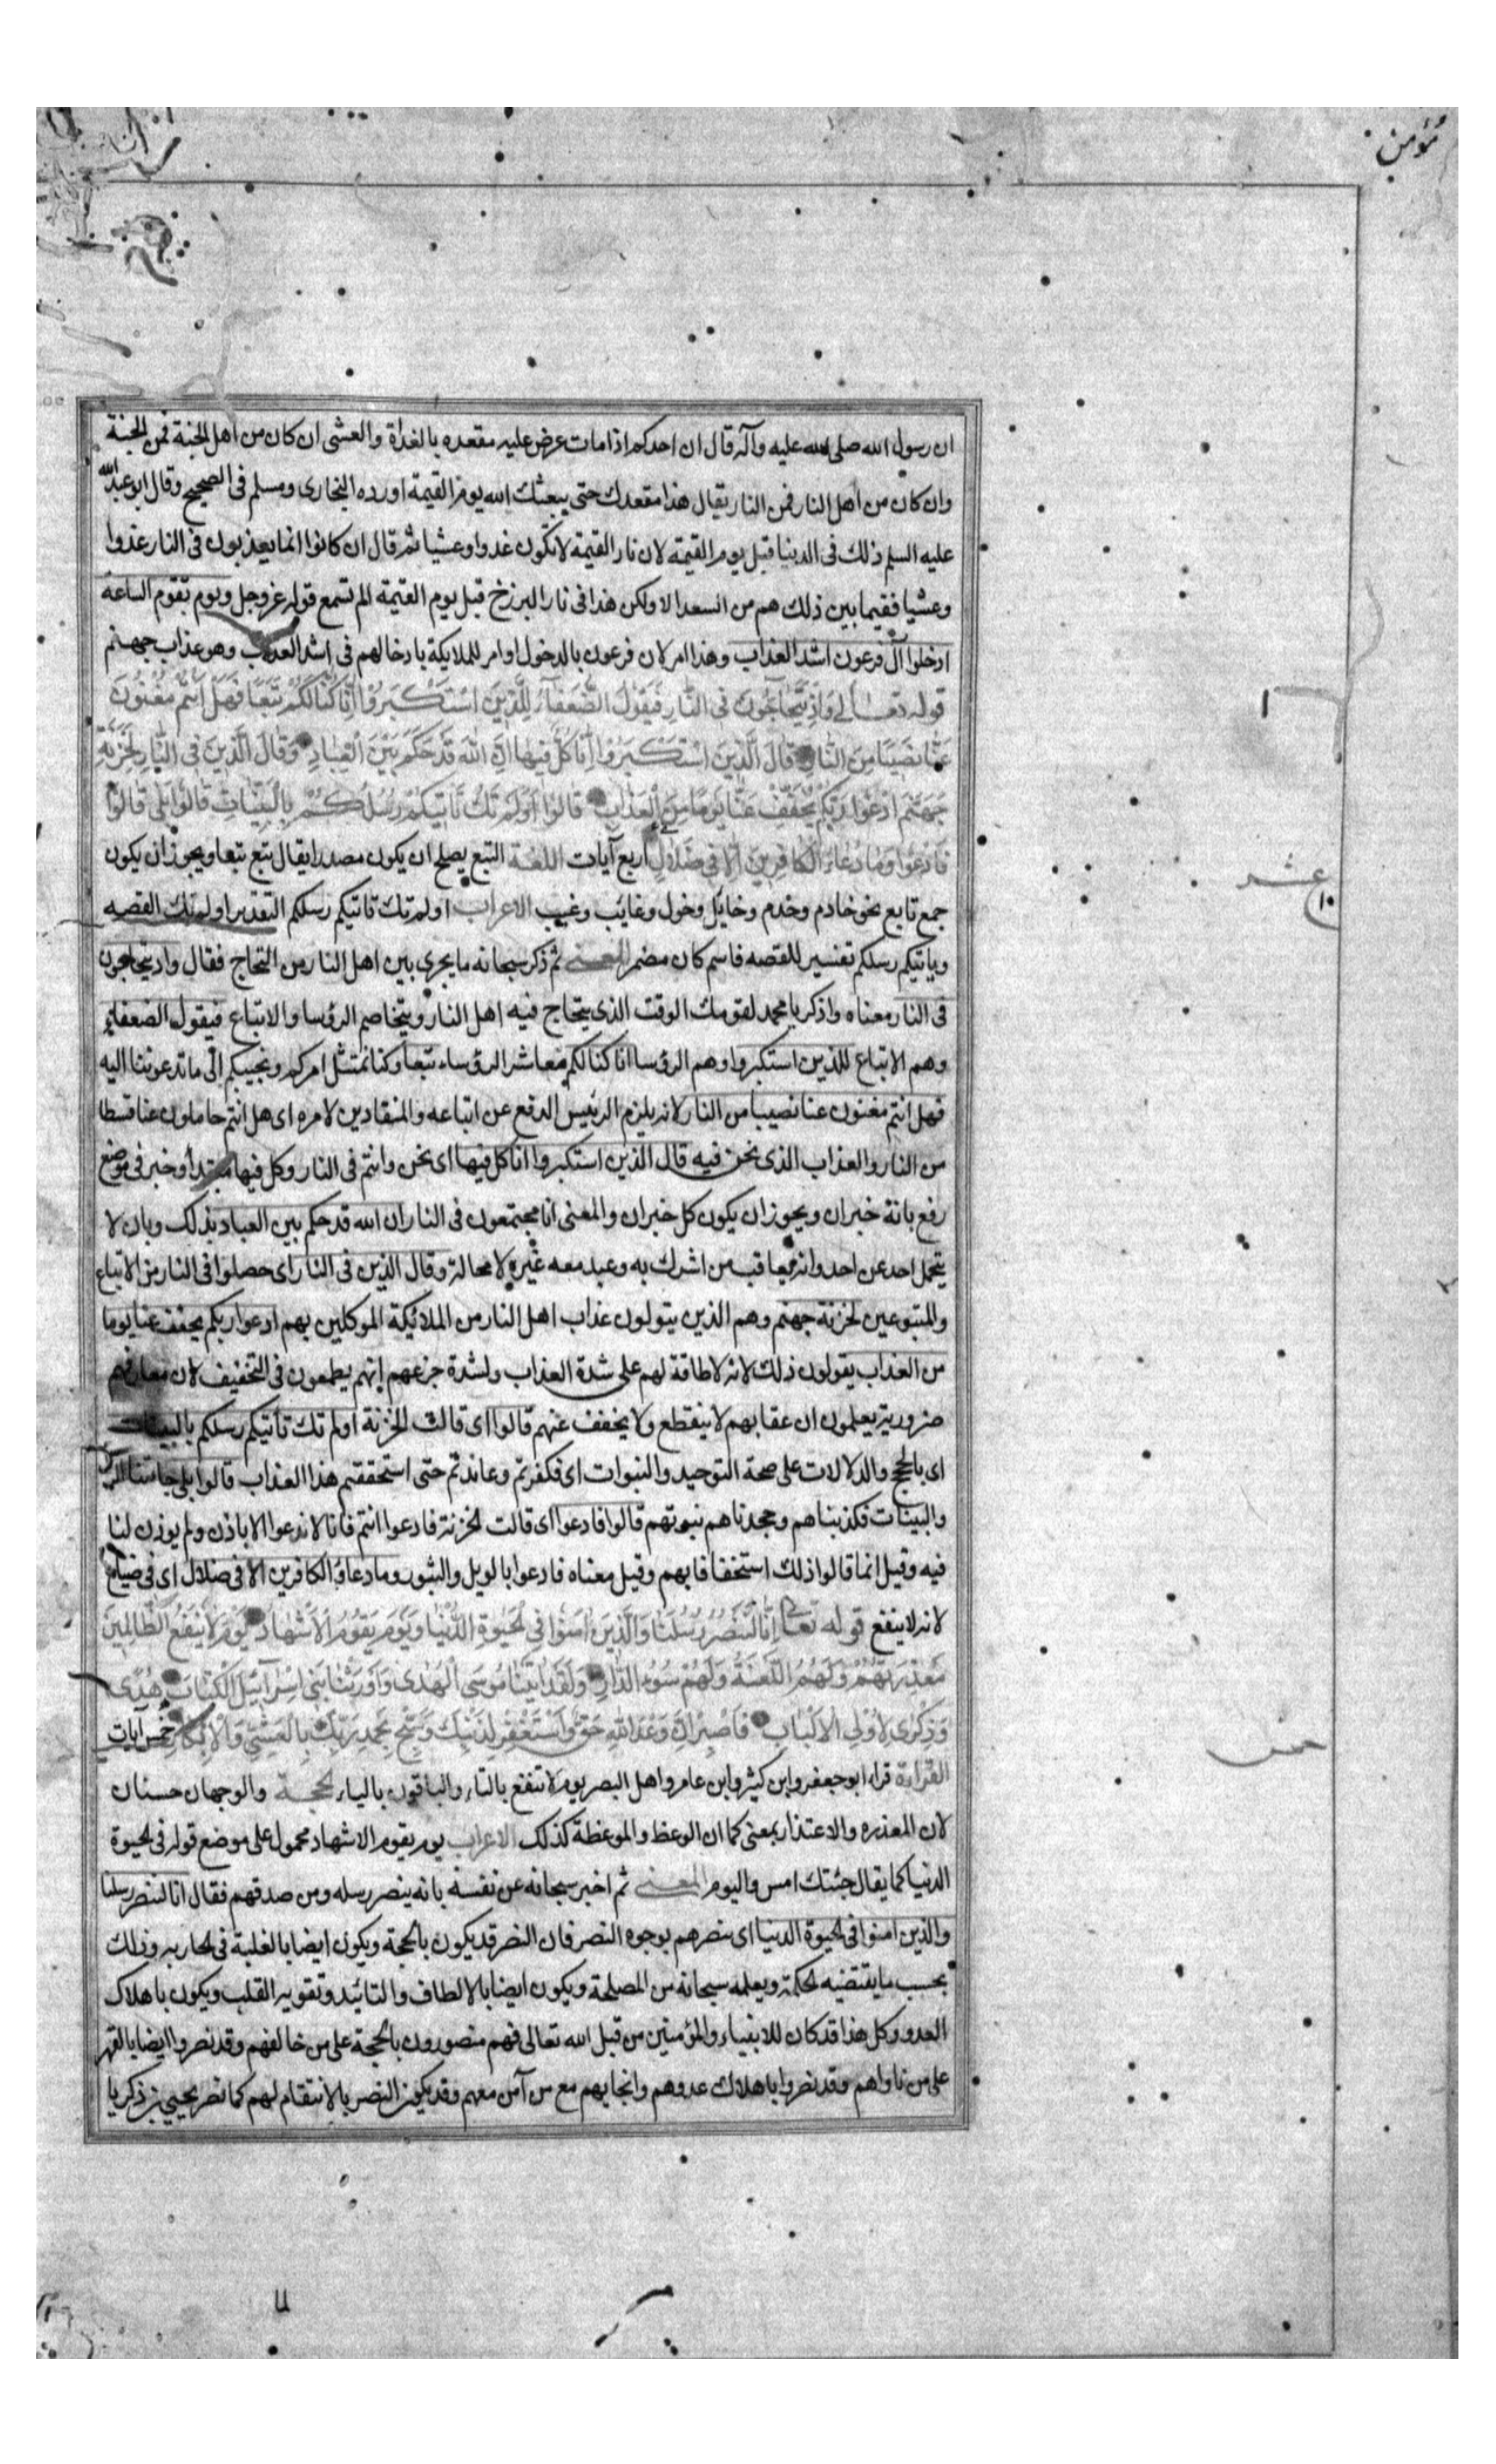 مؤمن
ان رسول الله صلى الله عليه وآله قال ان احدكم اذا مات عرض عليه مقعده بالغداة والعشى ان كان من اهل الجنة فمن الجنة
وان كان من اهل النار فمن النار يقال هذا مقعدك حتى يبعثك الله يوم القيمة اورده البخارى ومسلم فى الصحيح وقال ابو عبد الله
عليه السلم ذلك فى الدينا قبل يوم القيمة لان نار القيمة لا تكون غدوا وعشيا ثم قال ان كانوا انما يعذبون فى النار غدوا
وعشيا ففيما بين ذلك هم من السعدا لا ولكن هذا فى نار البرزخ قبل يوم القيمة الم تسمع قوله عز وجل ويوم تقوم الساعة
ادخلوا آل فرعون اشد العذاب وهذا امر لان فرعون بالدخول او امر للملايكة بادخالهم فى اشد العذاب وهو عذاب جهنم
قوله تعالى وَاِذْ يَتَحَاجُّونَ فى النَّارِ فَيَقُولُ الضُّعَفَآءُ لِلَّذِينَ اسْتَكْبَرُوا اِنَّا كُنَّا لَكُمْ تَبَعًا فَهَلْ اَنْتُمْ مُغْنُونَ
عَنَّا نَصِيبًا مِنَ النَّارِ قَالَ الَّذِينَ اسْتَكْبَرُوا اِنَّا كُلٌّ فِيهَا اِنَّ اللهَ قَدْ حَكَمَ بَيْنَ الْعِبَادِ وَقَالَ الَّذِينَ فى النَّارِ لِخَزَنَةِ
جَهَنَّمَ ادْعُوا رَبَّكُمْ يُخَفِّفْ عَنَّا يَوْمًا مِنَ الْعَذَابِ قَالُوا اَوَلَمْ تَكُ تَاْتِيكُمْ رُسُلُكُمْ بِالْبَيِّنَاتِ قَالُوا بَلَى قَالُوا
فَادْعُوا وَمَا دُعَاءُ الْكَافِرِينَ اِلَّا فى ضَلَالٍ اربع آيات اللغة التبع يصلح ان يكون مصدرا يقال تبع تبعا ويجوز ان يكون
جمع تابع نحو خادم وخدم وخايل وخول وغايب وغيب الاعراب اولم تك تاتيكم رسلكم التقدير اولم تك القصه
وياتيكم رسلكم تفسير للقصه فاسم كان مضمر المعنى ثم ذكر سبحانه ما يجرى بين اهل النار من التحاج فقال واذ يتحاجون
فى النار معناه واذكر يا محمد لقومك الوقت الذى يتحاج فيه اهل النار ويتخاصم الرؤسا والاتباع فيقول الضعفاء
وهم الاتباع للذين استكبروا وهم الرؤسا انا كنا لكم معاشر الرؤساء تبعا وكنا نمتثل امركم ونجيبكم الى ما تدعوننا اليه
فهل انتم مغنون عنا نصيبا من النار لانه يلزم الرئيس الدفع عن اتباعه والمنقادين لامره اى هل انتم حاملون عنا قسطا
من النار والعذاب الذى نحن فيه قال الذين استكبروا انا كل فيها اى نحن وانتم فى النار وكل فيها مبتدأ وخبر فى موضع
رفع بانه خبر ان ويجوز ان يكون كل خبر ان والمعنى انا مجتمعون فى النار ان الله قد حكم بين العباد بذلك وبان لا
يتحمل احد عن احد وانه يعاقب من اشرك به وعبد معه غيره لا محالة وقال الذين فى النار اى حصلوا فى النار من الاتباع
والمتبوعين لخزنة جهنم وهم الذين يتولون عذاب اهل النار من الملائيكة الموكلين بهم ادعوا ربكم يخفف عنا يوما
من العذاب يقولون ذلك لانه لا طاقة لهم على شدة العذاب ولشدة جزعهم انهم يطمعون فى التخفيف لان معارفهم
ضرورية يعلمون ان عقابهم لا ينقطع ولا يخفف عنهم قالوا اى قالت الخزنة اولم تك تاتيكم رسلكم بالبينات
اى بالحجج والدلالات على صحة التوحيد والنبوات اى فكفرتم وعاندتم حتى استحققتم هذا العذاب قالوا بلى جاءتنا الرسل
والبينات فكذبناهم وجحدناهم نبوتهم قالوا فادعوا اى قالت الخزنة فادعوا انتم فانا لا ندعوا الا باذن ولم يوذن لنا
فيه وقيل انما قالوا ذلك استخفافا بهم وقيل معناه فادعوا بالويل والثبور وما دعاؤ الكافرين الا فى ضلال اى فى ضياع
لانه لا ينفع قوله تعالى اِنَّا لَنَنْصُرُ رُسُلَنَا وَالَّذِينَ اٰمَنُوا فِى الْحَيٰوةِ الدُّنْيَا وَيَوْمَ يَقُومُ الْاَشْهَادُ يَوْمَ لَا يَنْفَعُ الظَّالِمِينَ
مَعْذِرَتُهُمْ وَلَهُمُ اللَّعْنَةُ وَلَهُمْ سُوءُ الدَّارِ وَلَقَدْ اٰتَيْنَا مُوسَى الْهُدٰى وَاَوْرَثْنَا بَنِى اِسْرَآئِيلَ الْكِتَابَ هُدًى
وَذِكْرٰى لِاُولِى الْاَلْبَابِ فَاصْبِرْ اِنَّ وَعْدَ اللهِ حَقٌّ وَاسْتَغْفِرْ لِذَنْبِكَ وَسَبِّحْ بِحَمْدِ رَبِّكَ بِالْعَشِىِّ وَالْاِبْكَارِ خمس آيات
القراءة قراء ابو جعفر وابن كثير وابن عامر واهل البصر يوم لا تنفع بالتاء والباقون بالياء الحجة والوجهان حسنان
لان المعذره والاعتذار بمعنى كما ان الوعظ والموعظة كذلك الاعراب يوم يقوم الاشهاد محمول على موضع قوله فى الحيوة
الدنيا كما يقال جئتك امس واليوم المعنى ثم اخبر سبحانه عن نفسه بانه ينصر رسله ومن صدقهم فقال انا لننصر رسلنا
والذين امنوا فى الحيوة الدنيا اى ننصرهم بوجوه النصر فان النصر قد يكون بالحجة ويكون ايضا بالغلبة فى المحاربه وذلك
بحسب ما يقتضيه الحكمة ويعلمه سبحانه من المصلحة ويكون ايضا بالالطاف والتائيد وتقوية القلب ويكون باهلاك
العدو وكل هذا قد كان للانبياء والمؤمنين من قبل الله تعالى فهم منصورون بالحجة على من خالفهم وقد نصروا ايضا بالقهر
على من ناواهم وقد نصروا باهلاك عدوهم وانجايهم مع من آمن معهم وقد يكون النصر بالانتقام لهم كما نصر يحيى بن زكريا
عشر
١٠
خمس